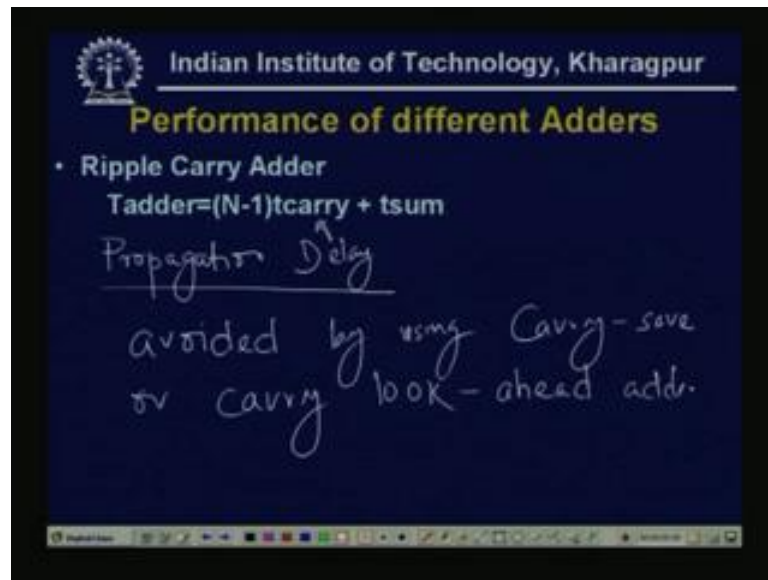 Indian Institute of Technology, Kharagpur
Performance of different Adders
• Ripple Carry Adder
Tadder=(N-1)tcarry + tsum
Propagation Delay
avoided by using Carry-save
or carry look-ahead addr.